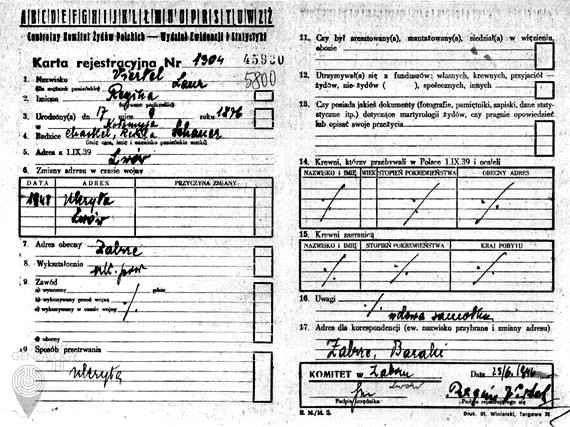 A B C D E F G H I J K L Ł M N O P R S T U W Z Ż
Centralny Komitet Żydów Polskich — Wydział Ewidencji i Statystyki
Karta rejestracyjna Nr 1304 45930
5800
1. Nazwisko Viertel
(dla mężatek panieńskie) Laur
2. Imiona Regina
3. Urodzony(a) dn. 17 mies. 9 roku 1876
w Kołomyja
4. Rodzice
5. Adres z 1.IX.39 Lwów
6. Zmiany adresu w czasie wojny
DATA ADRES PRZYCZYNA ZMIANY
ukryta
Lwów
7. Adres obecny Zabrze
8. Wykształcenie
9. Zawód
a) wyuczony gdzie
b) wykonywany przed wojną
c) wykonywany w czasie wojny
d) obecny
Sposób przetrwania
ukryta
11. Czy był aresztowany(a), maltretowany(a), siedział(a) w więzieniu,
obozie
12. Utrzymywał(a) się z funduszów: własnych, krewnych, przyjaciół —
żydów, nie-żydów ( ), społecznych, innych
13. Czy posiada jakieś dokumenty (fotografie, pamiętniki, zapiski, dane staty-
styczne itp.) dotyczące martyrologii żydów, czy pragnie opowiedzieć
lub opisać swoje przeżycia
14. Krewni, którzy przebywali w Polsce 1.IX.39 i ocaleli
NAZWISKO I IMIĘ WIEK STOPIEŃ POKREWIEŃSTWA OBECNY ADRES
15. Krewni zagranicą
NAZWISKO I IMIĘ STOPIEŃ POKREWIEŃSTWA KRAJ POBYTU
16. Uwagi
wdowa samotna
17. Adres do korespondencji (ew. nazwisko przybrane i zmiany adresu)
Zabrze, Baraki
KOMITET w Zabrzu Data 25/6 1946
Lwów
Podpis urzędnika
Podpis rejestrującego się
R. M./M. S. Druk. St. Winiarski, Targowa